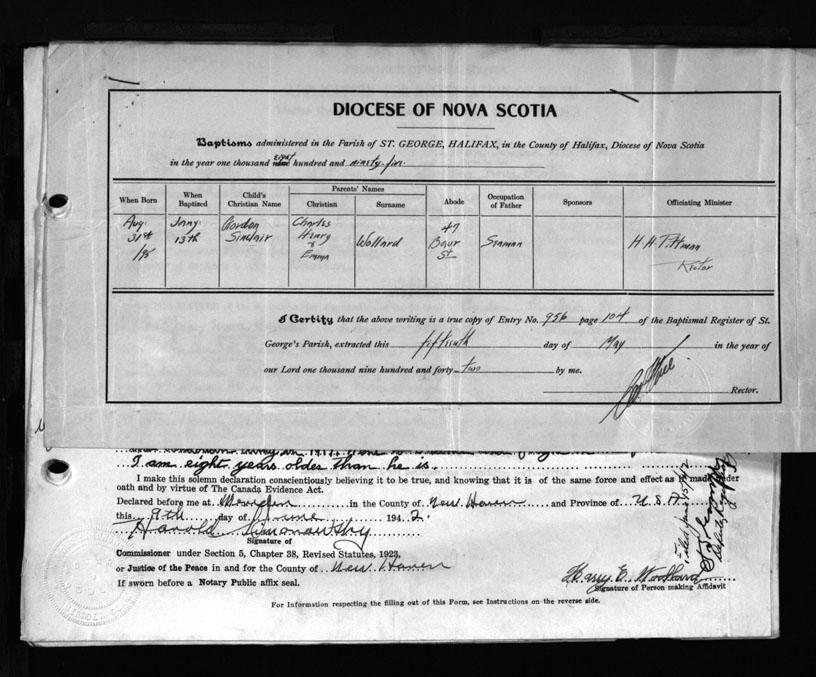 DIOCESE OF NOVA SCOTIA
Baptisms administered in the Parish of ST. GEORGE, HALIFAX, in the County of Halifax, Diocese of Nova Scotia
in the year one thousand eight nine hundred and ninety-five.
When Born When Baptized Child's Christian Name Parents' Names Christian Surname Abode Occupation of Father Sponsors Officiating Minister
Aug. 31st Jany. 13th Gordon Sinclair Charles Henry & Emma Wollard 47 St Seaman H. H. Pittman
Rector
I Certify that the above writing is a true copy of Entry No. 956 page 104 of the Baptismal Register of St.
George's Parish, extracted this fifteenth day of May in the year of
our Lord one thousand nine hundred and forty-two by me.
Rector.
in 1917.
I am eight years older than he is.
I make this solemn declaration conscientiously believing it to be true, and knowing that it is of the same force and effect as if made under
oath and by virtue of The Canada Evidence Act.
Declared before me at Meriden in the County of New Haven and Province of U.S.A.
this 9th day of June 1942.
Harold
Signature of
Commissioner under Section 5, Chapter 38, Revised Statutes, 1923,
or Justice of the Peace in and for the County of New Haven
If sworn before a Notary Public affix seal.
Harry E. Woollard
Signature of Person making Affidavit
For Information respecting the filling out of this Form, see Instructions on the reverse side.